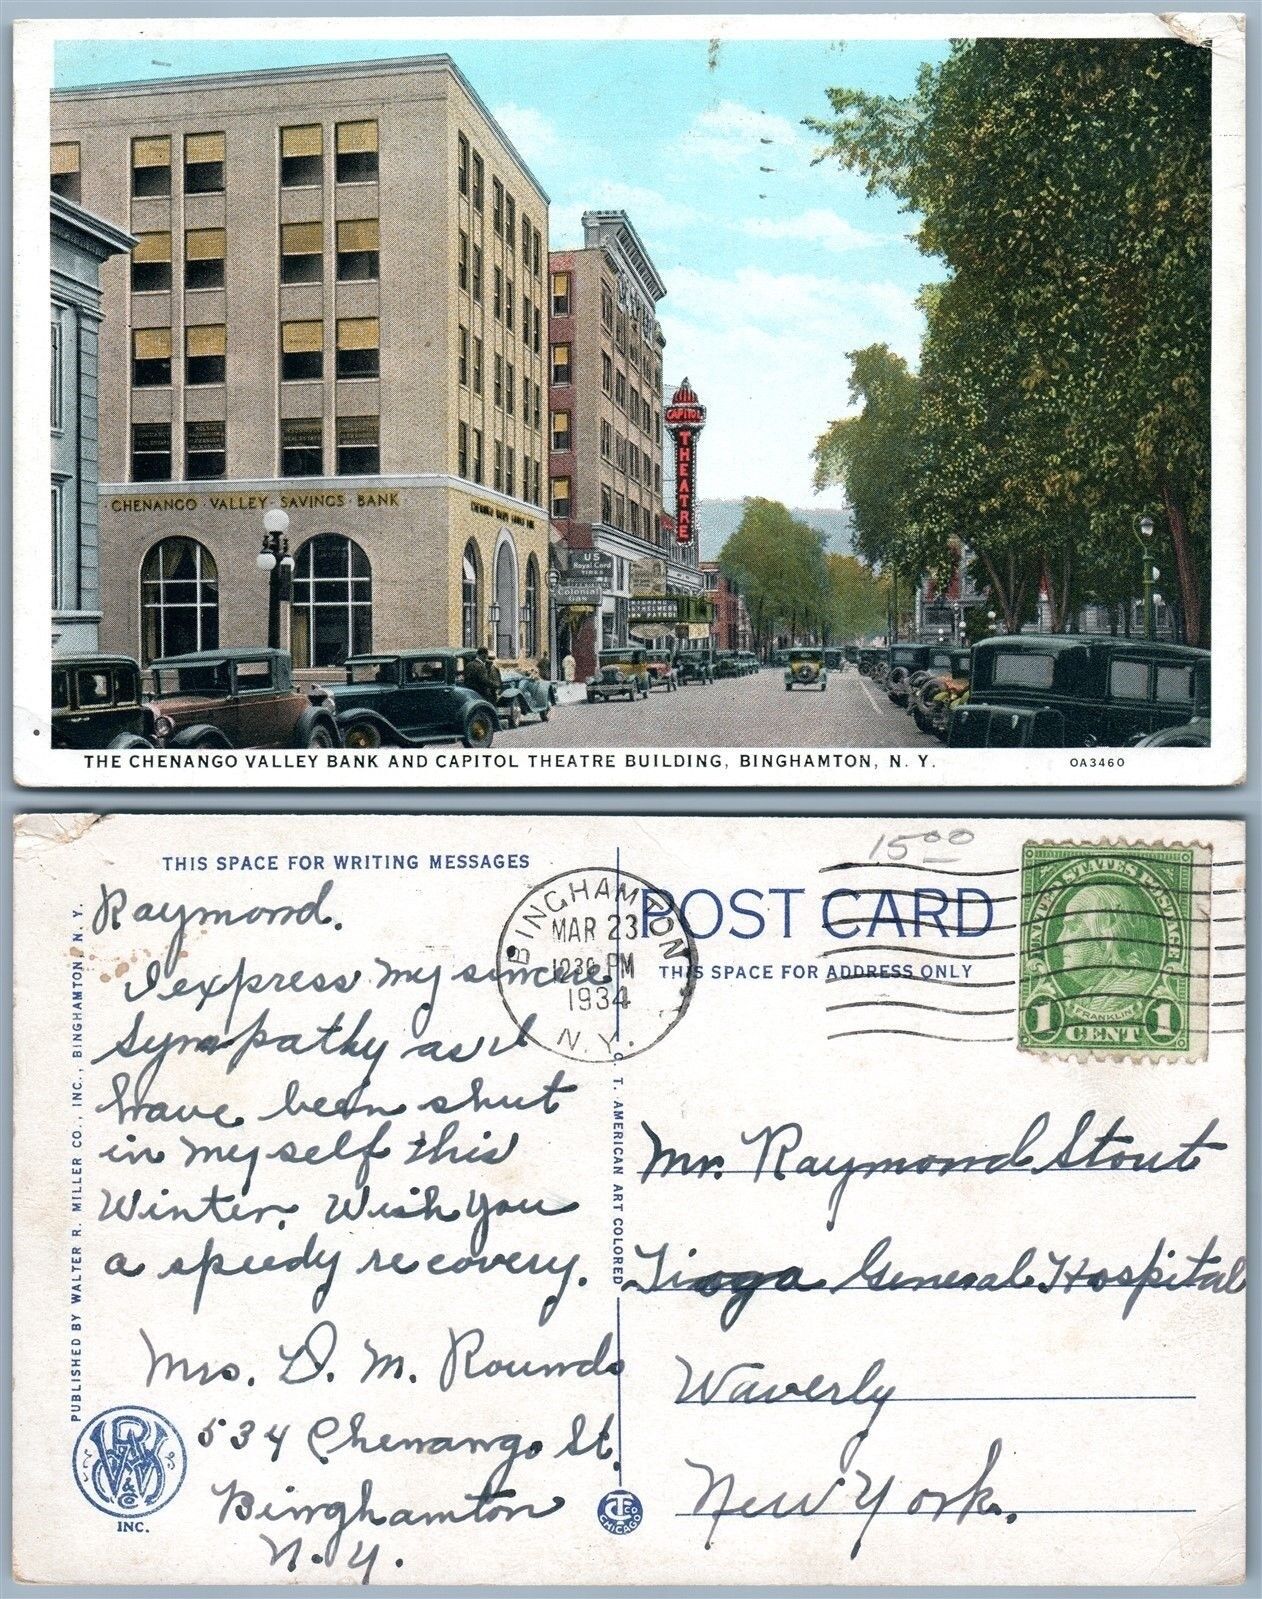 CHENANGO · VALLEY · SAVINGS · BANK
CAPITOL
THEATRE
US
Royal Cord
TIRES
Colonial
Gas
THE CHENANGO VALLEY BANK AND CAPITOL THEATRE BUILDING, BINGHAMTON, N. Y.
OA3460
THIS SPACE FOR WRITING MESSAGES
Raymond.
I express my sincere
sympathy as I
have been shut
in myself this
Winter. Wish you
a speedy recovery.
Mrs. D. M. Rounds
534 Chenango St.
Binghamton
N.Y.
PUBLISHED BY WALTER R. MILLER CO., INC., BINGHAMTON, N. Y.
INC.
BINGHAMTON
MAR 23
12 30 PM
1934
N.Y.
C. T. AMERICAN ART COLORED
CT CO
CHICAGO
15 00
POST CARD
THIS SPACE FOR ADDRESS ONLY
UNITED STATES POSTAGE
FRANKLIN
1 CENT 1
Mr. Raymond Stout
Tioga General Hospital
Waverly
New York.